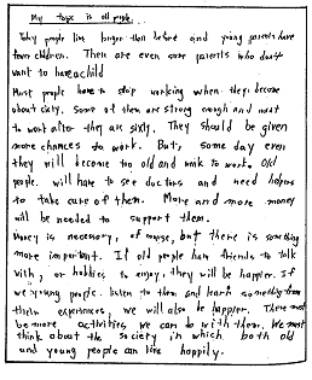 My topic is old people.
Today people live longer than before and young parents have
fewer children. There are even some parents who don't
want to have a child
Most people have to stop working when they become
about sixty. Some of them are strong enough and want
to work after they are sixty. They should be given
more chances to work. But, some day even
they will become too old and weak to work. Old
people will have to see doctors and need helpers
to take care of them. More and more money
will be needed to support them.
Money is necessary, of course, but there is something
more important. If old people have friends to talk
with, or hobbies to enjoy, they will be happier. If
we young people listen to them and learn something from
their experiences, we will also be happier. There must
be more activities we can do with them. We must
think about the society in which both old
and young people can live happily.